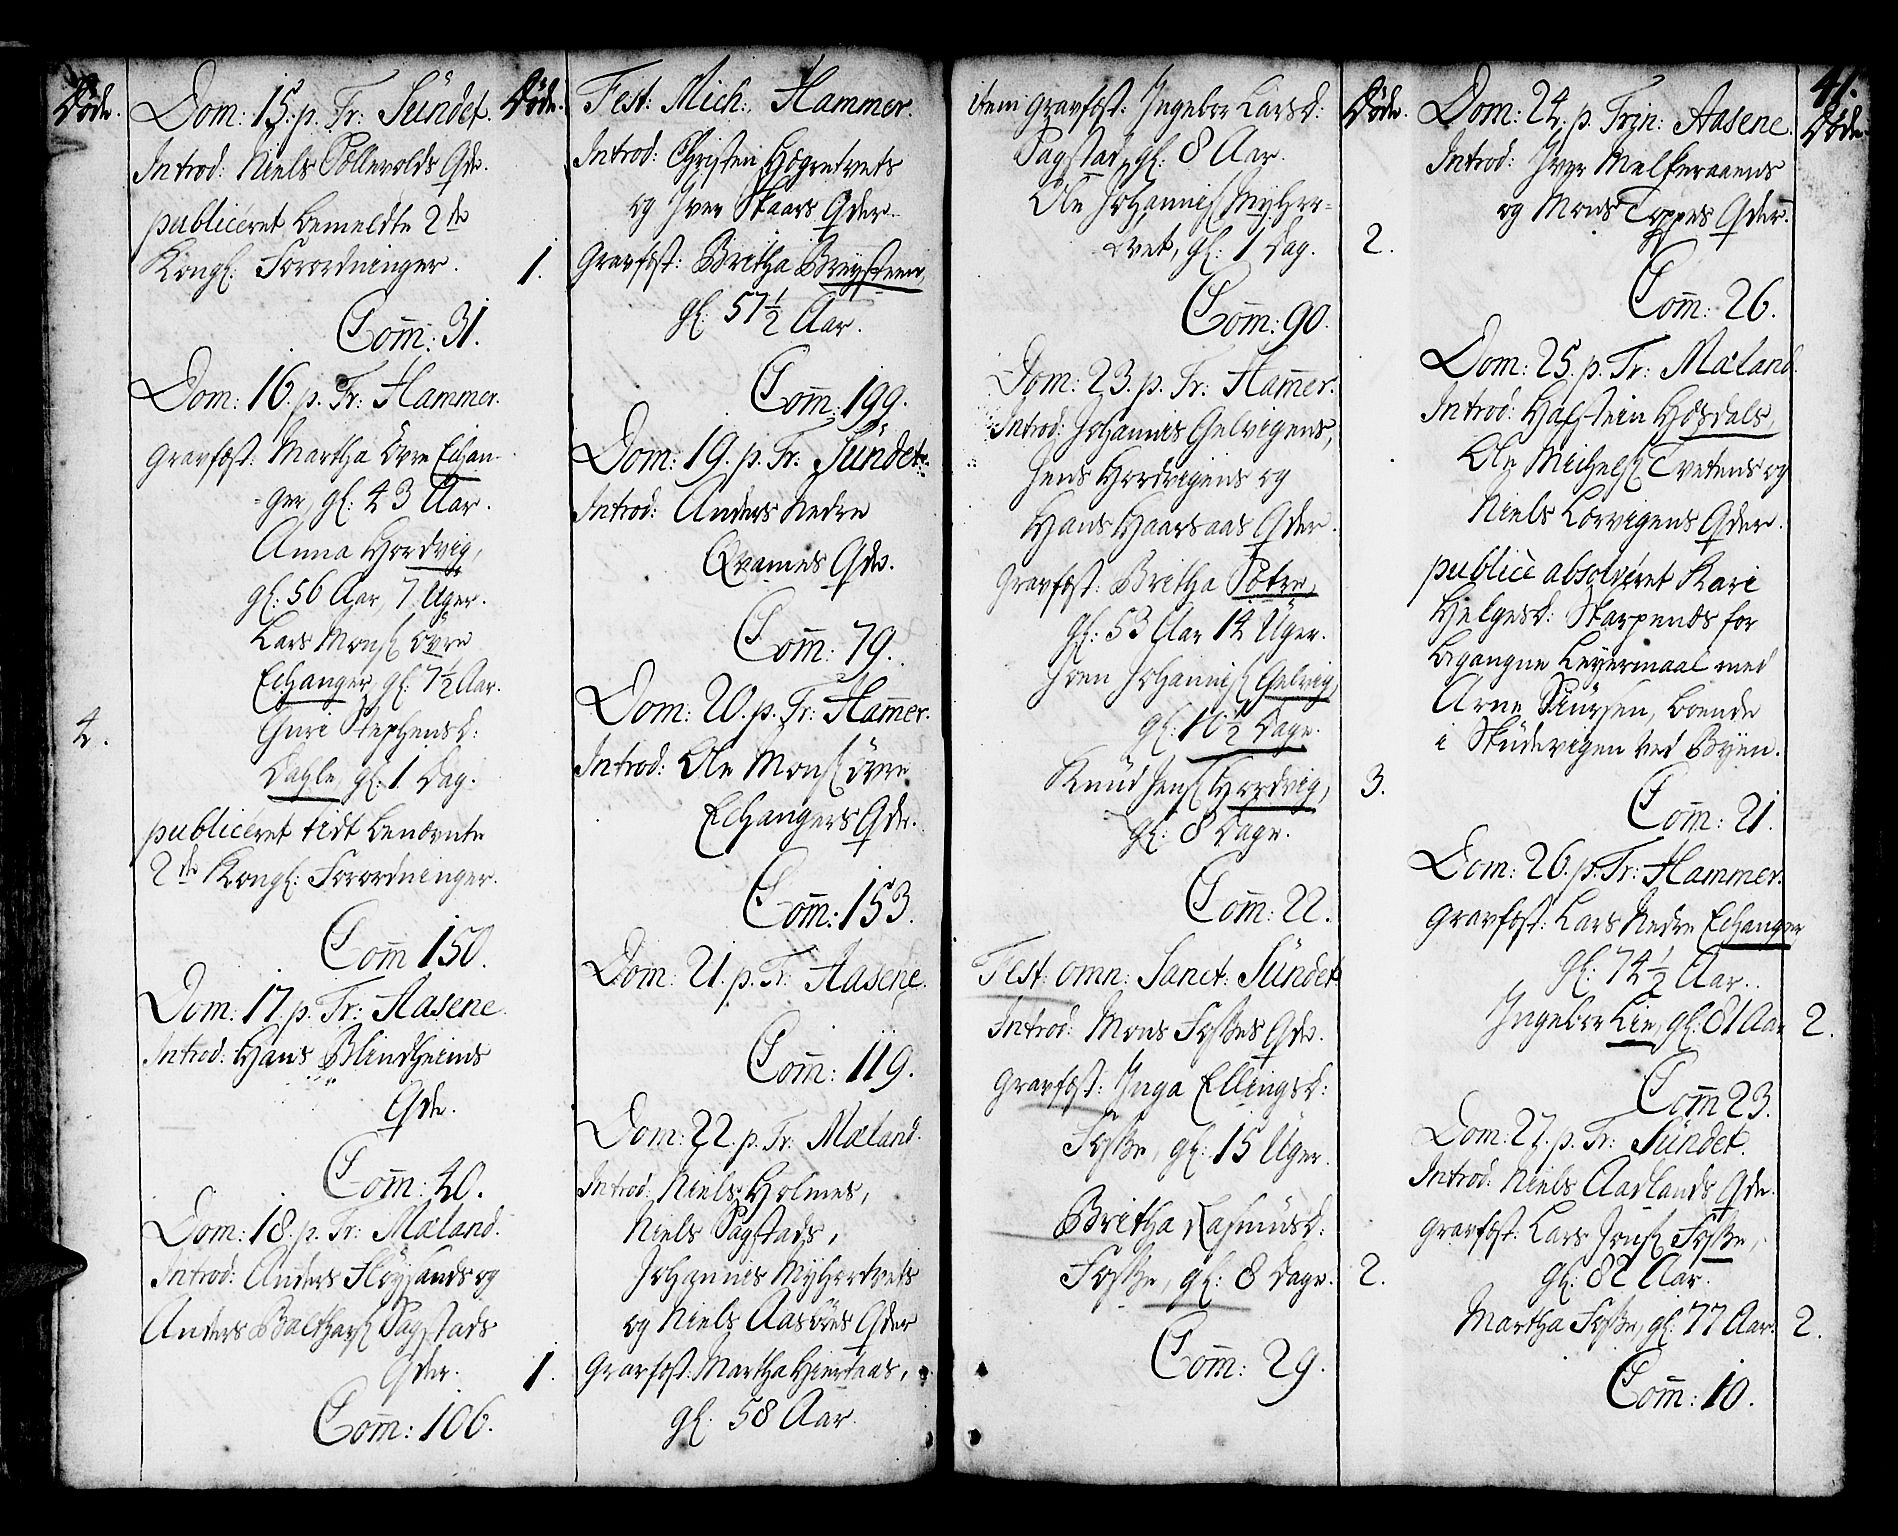 Døde.
Dom: 15. p. Tr: Sündet.
Introd: Niels Pollevolds Qde.
publiceret bemeldte 2de
Kongl: Forordninger.
Com̅: 31.
Dom: 16. p. Tr: Hammer.
Gravfæst: Martha Övre Echan-
-ger, gl: 43 Aar.
Anna Hordvig,
gl: 56 Aar, 7 Uger.
Lars Mons: övre
Echanger, gl: 7½ Aar.
Guri Stephensd:
4.
Dahle, gl: 1 Dag.
publiceret tidt benævnte
2de Kongl: Forordninger.
Com̅ 150.
Dom: 17. p. Tr: Aasene.
Introd: Hans Blindheims
Qde.
Com̅: 40.
Dom: 18. p. Tr: Mæland.
Introd: Anders Fløysands og
Anders Balthars: Sagstads
Qder.
Com̅: 106.
Døde.
Fest: Mich: Hammer.
Introd: Christen Høgretvets
og Iver Skaars Qder.
1.
Gravfæst: Britha Breysteen,
gl: 57½ Aar.
Com̅: 199.
Dom: 19. p. Tr: Sündet.
Introd: Anders Nedre
Qvamės Qde.
Com̅: 79.
Dom: 20. p. Tr: Ham̅er.
Introd: Ole Mons: övre
Echangers Qde.
Com̅: 153.
Dom: 21. p. Tr: Aasene.
Com̅: 119.
Dom: 22. p. Tr: Mæland.
Introd: Niels Holmes,
Niels Sagstads,
Johannes Myhrtvets
og Niels Aasöes Qder
1.
Gravfæst: Martha Hiertaas,
gl: 58 Aar.
item Gravfæst: Ingebor Larsd:
Sagstad, gl: 8 Aar.
Ole Johannis: Myhr-
-tvet, gl: 1 Dag.
2.
Com̅: 90.
Dom: 23. p. Tr: Ham̅er.
Introd: Johannes Gelvigens,
Jens Hordvigens og
Hans Haarsaas Qder.
Gravfæst: Britha Sætre,
gl: 53 Aar 14 Uger.
Iven Johannis: Gelvig,
gl: 10½ Dage.
Knud Jens: Hordvig,
3.
gl: 8 Dage.
Com̅: 22.
Fest: omn: Sanct: Sündet
Introd: Mons Fosses Qde.
Gravfæst: Inga Ellingsd:
Fosse, gl: 15 Uger.
Britha Rasmusd:
Fosse, gl: 8 Dage.
2.
Com̅: 29.
Døde.
Dom: 24. p. Trin: Aasene.
Introd: Iver Melkeraaens
og Mons Toppes Qder.
Com̅: 26.
Dom: 25. p. Tr: Mæland.
Introd: Hafstein Høsdals,
Ole Michels: Tvetens og
Niels Lervigens Qder.
publicè absolveret Kari
Helgesd: Skarpends for
begangne Leyermaal med
Arne Siursen, boende
i Skudevigen ved Byen.
Com̅: 21.
Dom: 26. p. Tr: Hammer.
Gravfæst: Lars Nedre Echanger
gl: 74½ Aar.
Ingebor Lie, gl: 81 Aar
2.
Com̅ 23.
Dom: 27. p. Tr: Sündet.
Introd: Niels Aadlands Qde.
Gravfæst: Lars Jons: Fosse,
gl: 82 Aar.
Martha Fosse, gl: 77 Aar.
2.
Com̅: 10.
41.
Døde